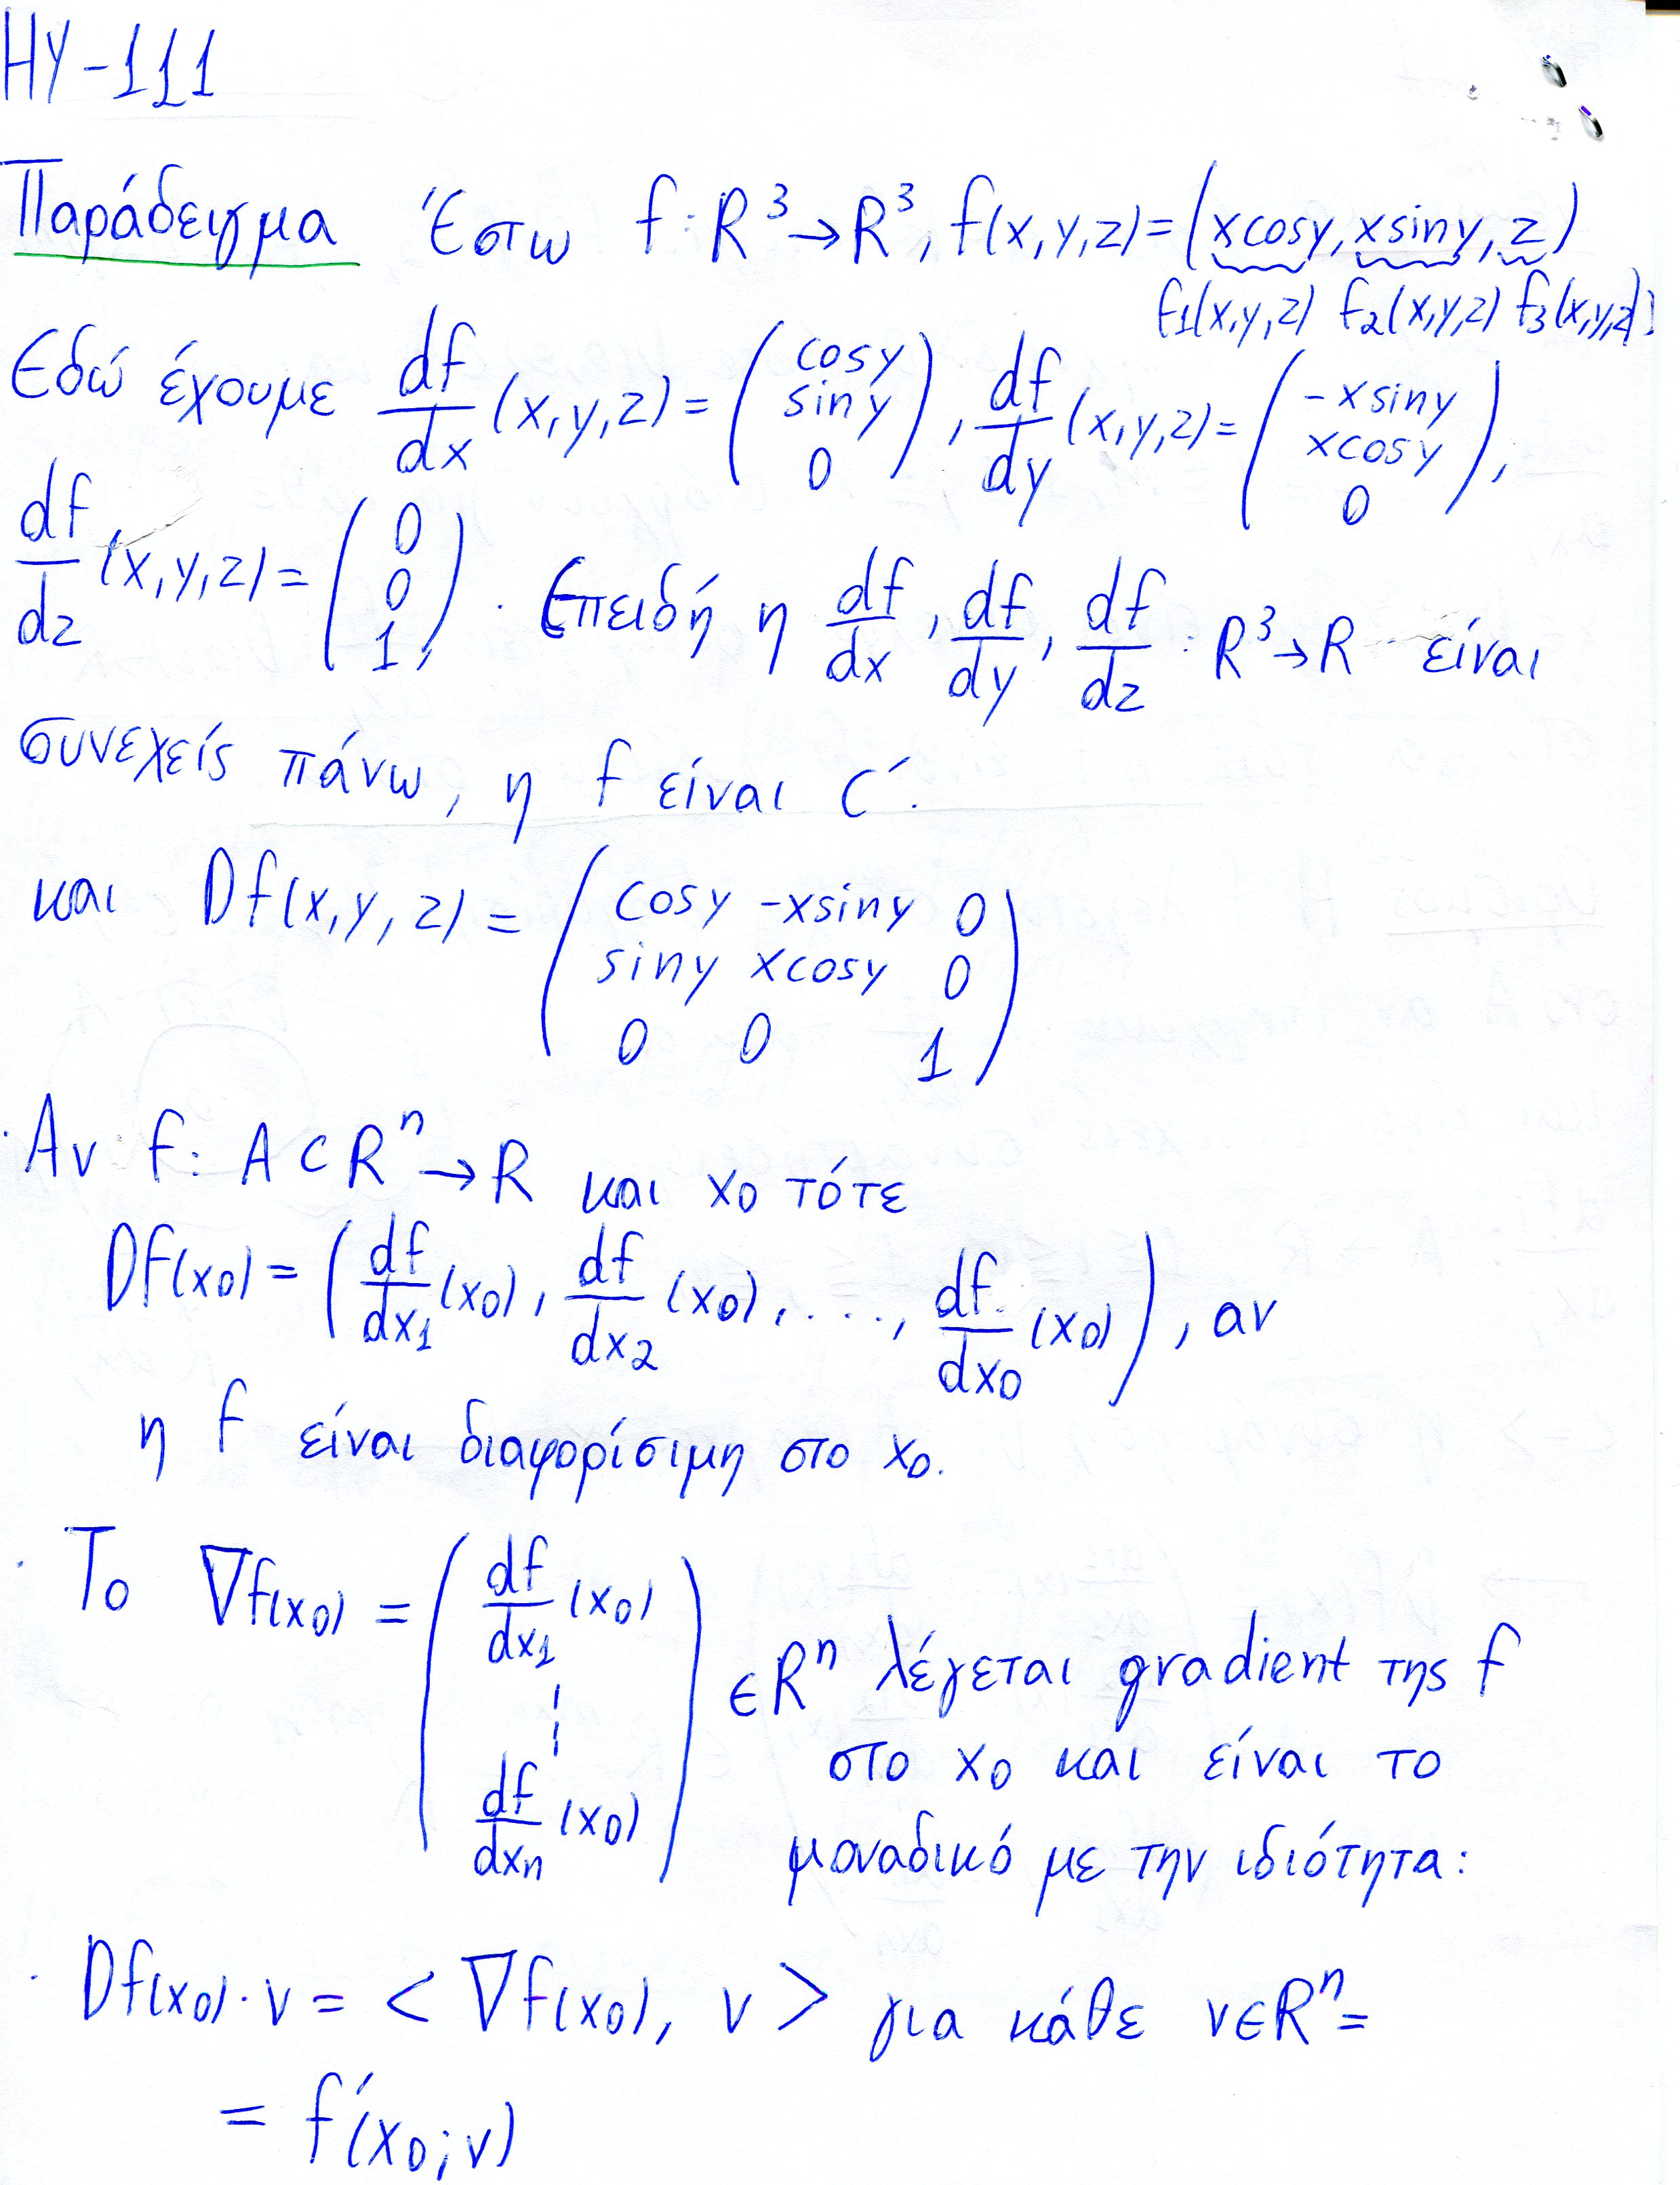 ΗΥ-111
Παράδειγμα Έστω f: R³→R³, f(x,y,z)=(xcosy, xsiny, z)
f₁(x,y,z) f₂(x,y,z) f₃(x,y,z)
Εδώ έχουμε df/dx (x,y,z)= (cosy siny 0), df/dy (x,y,z)= (-xsiny xcosy 0),
df/dz (x,y,z)= (0 0 1). Επειδή η df/dx, df/dy, df/dz : R³→R είναι
συνεχείς πάνω, η f είναι C´.
και Df(x,y,z) = (cosy -xsiny 0
siny xcosy 0
0 0 1)
Αν f: A⊂Rⁿ→R και x₀ τότε
Df(x₀)= (df/dx₁ (x₀), df/dx₂ (x₀), ..., df/dx₀ (x₀)), αν
η f είναι διαφορίσιμη στο x₀.
Το ∇f(x₀) = (df/dx₁ (x₀) ⋮ df/dxₙ (x₀)) ∈Rⁿ λέγεται gradient της f
στο x₀ και είναι το
μοναδικό με την ιδιότητα:
Df(x₀)·v = < ∇f(x₀), v > για κάθε v∈Rⁿ=
= f´(x₀;v)